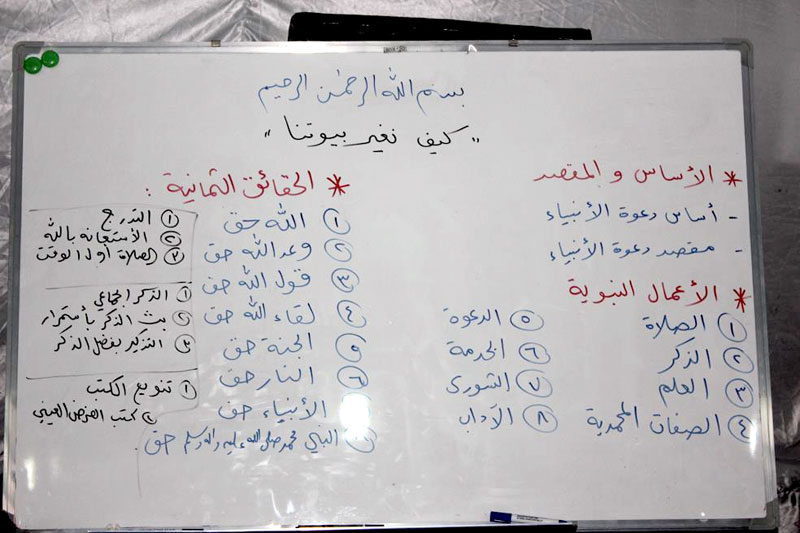 بسم الله الرحمن الرحيم
"كيف نغير بيوتنا"
* الأساس والمقصد
- أساس دعوة الأنبياء
- مقصد دعوة الأنبياء
* الأعمال النبوية
① الصلاة
② الذكر
③ العلم
④ الصفات المحمدية
⑤ الدعوة
⑥ الخدمة
⑦ الشورى
⑧ الآداب
* الحقائق الثمانية :
① الله حق
② وعد الله حق
③ قول الله حق
④ لقاء الله حق
⑤ الجنة حق
⑥ النار حق
الأنبياء حق
النبي محمد صلى الله عليه وآله وسلم حق
① التدرج
② الأستعانه بالله
③ الصلاة أول الوقت
① الذكر الجماعي
② بث الذكر بأستمرار
③ التذكير بفضل الذكر
① تنويع الكتب
② كتب الفرض العيني